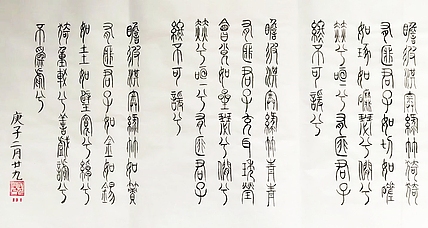 瞻彼淇奧綠竹猗猗
有匪君子如切如磋
如琢如磨瑟兮僩兮
赫兮咺兮有匪君子
終不可諼兮
瞻彼淇奧綠竹青青
有匪君子充耳琇瑩
會弁如星瑟兮僩兮
赫兮咺兮有匪君子
終不可諼兮
瞻彼淇奧綠竹如簀
有匪君子如金如錫
如圭如璧寬兮綽兮
猗重較兮善戲謔兮
不為虐兮
庚子二月廿九